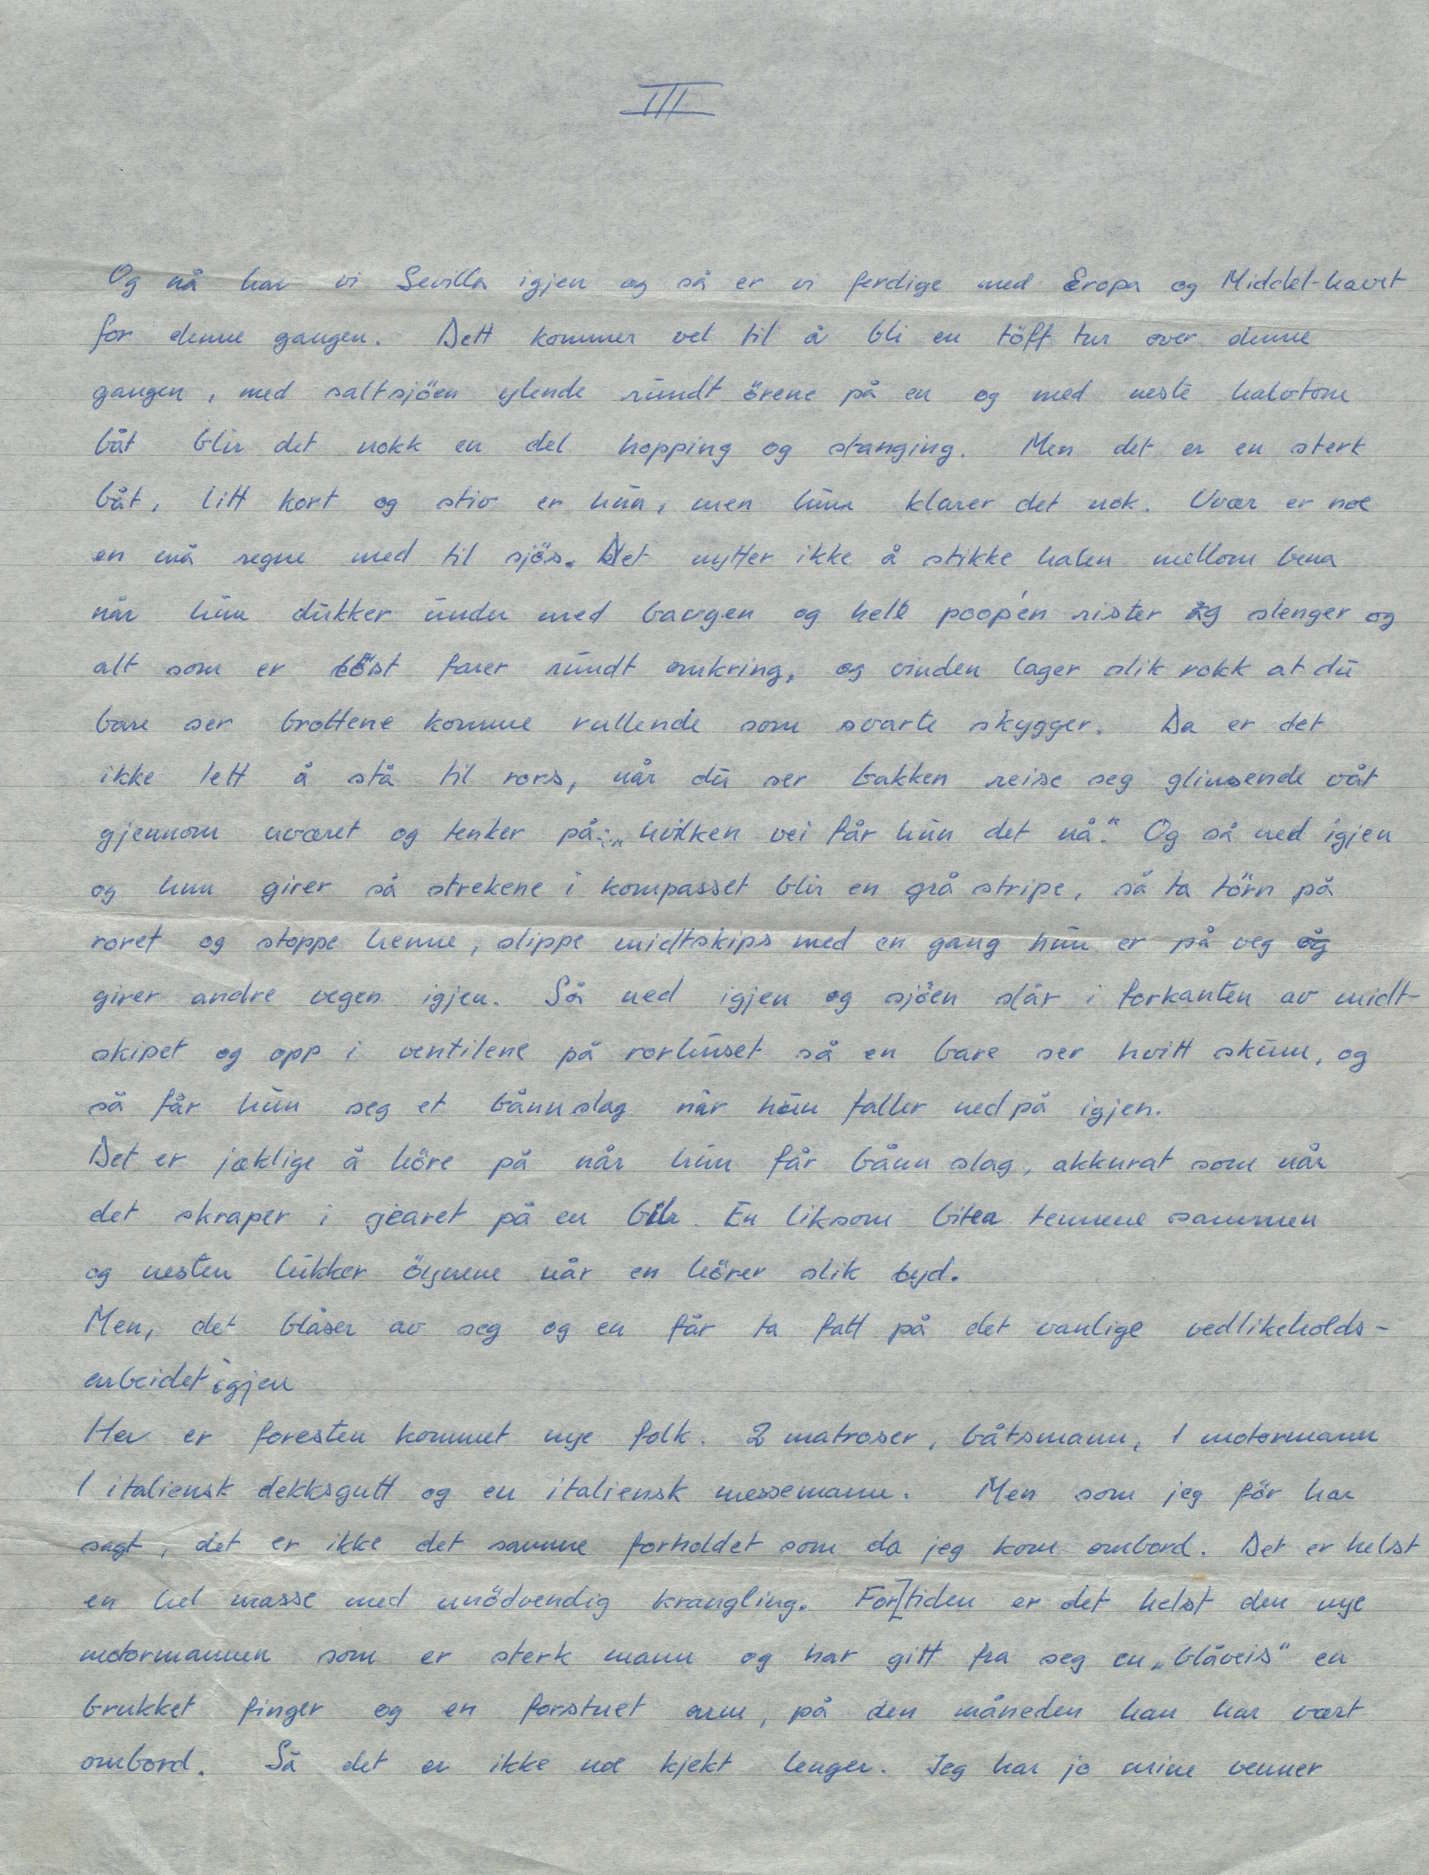 III
Og nå har vi Sevilla igjen og så er vi ferdige med Eropa og Middel-havet
for denne gangen. Dett kommer vel til å bli en töff tur over denne
gangen, med saltsjöen ylende rundt örene på en og med neste halvtom
båt blir det nokk en del hopping og stanging. Men det er en sterk
båt, litt kort og stiv er hun, men hun klarer det nok. Uvær er noe
en må regne med til sjös. Det nytter ikke å stikke halen mellom bena
når hun dukker under med baugen og hele poop'en rister og slenger og
alt som er löst farer rundt omkring, og vinden lager slik rokk at du
bare ser brottene komme rullende som svarte skygger. Da er det
ikke lett å stå til rors, når du ser bakken reise seg glinsende våt
gjennom uværet og tenker på: „hvilken vei får hun det nå." Og så ned igjen
og hun girer så strekene i kompasset blir en grå stripe, så ta törn på
roret og stoppe henne, slippe midtskips med en gang hun er på veg og
girer andre vegen igjen. Så ned igjen og sjöen slår i forkanten av midt-
skipet og opp i ventilene på rorhuset så en bare ser hvitt skum, og
så får hun seg et bånnslag når hun faller ned på igjen.
Det er jæklige å höre på når hun får bånn slag, akkurat som når
det skraper i gearet på en bil. En liksom biter tennene sammen
og nesten lukker öynene når en hörer slik lyd.
Men, det blåser av seg og en får ta fatt på det vanlige vedlikeholds-
arbeidet igjen
Her er foresten kommet nye folk. 2 matroser, båtsmann, 1 motormann
1 italiensk dekksgutt og en italiensk messemann. Men som jeg för har
sagt, det er ikke det samme forholdet som da jeg kom ombord. Det er helst
en hel masse med unödvendig krangling. For tiden er det helst den nye
motormannen som er sterk mann og har gitt fra seg en „blåveis" en
brukket finger og en forstuet arm, på den måneden han har vært
ombord. Så det er ikke noe kjekt lenger. Jeg har jo mine venner